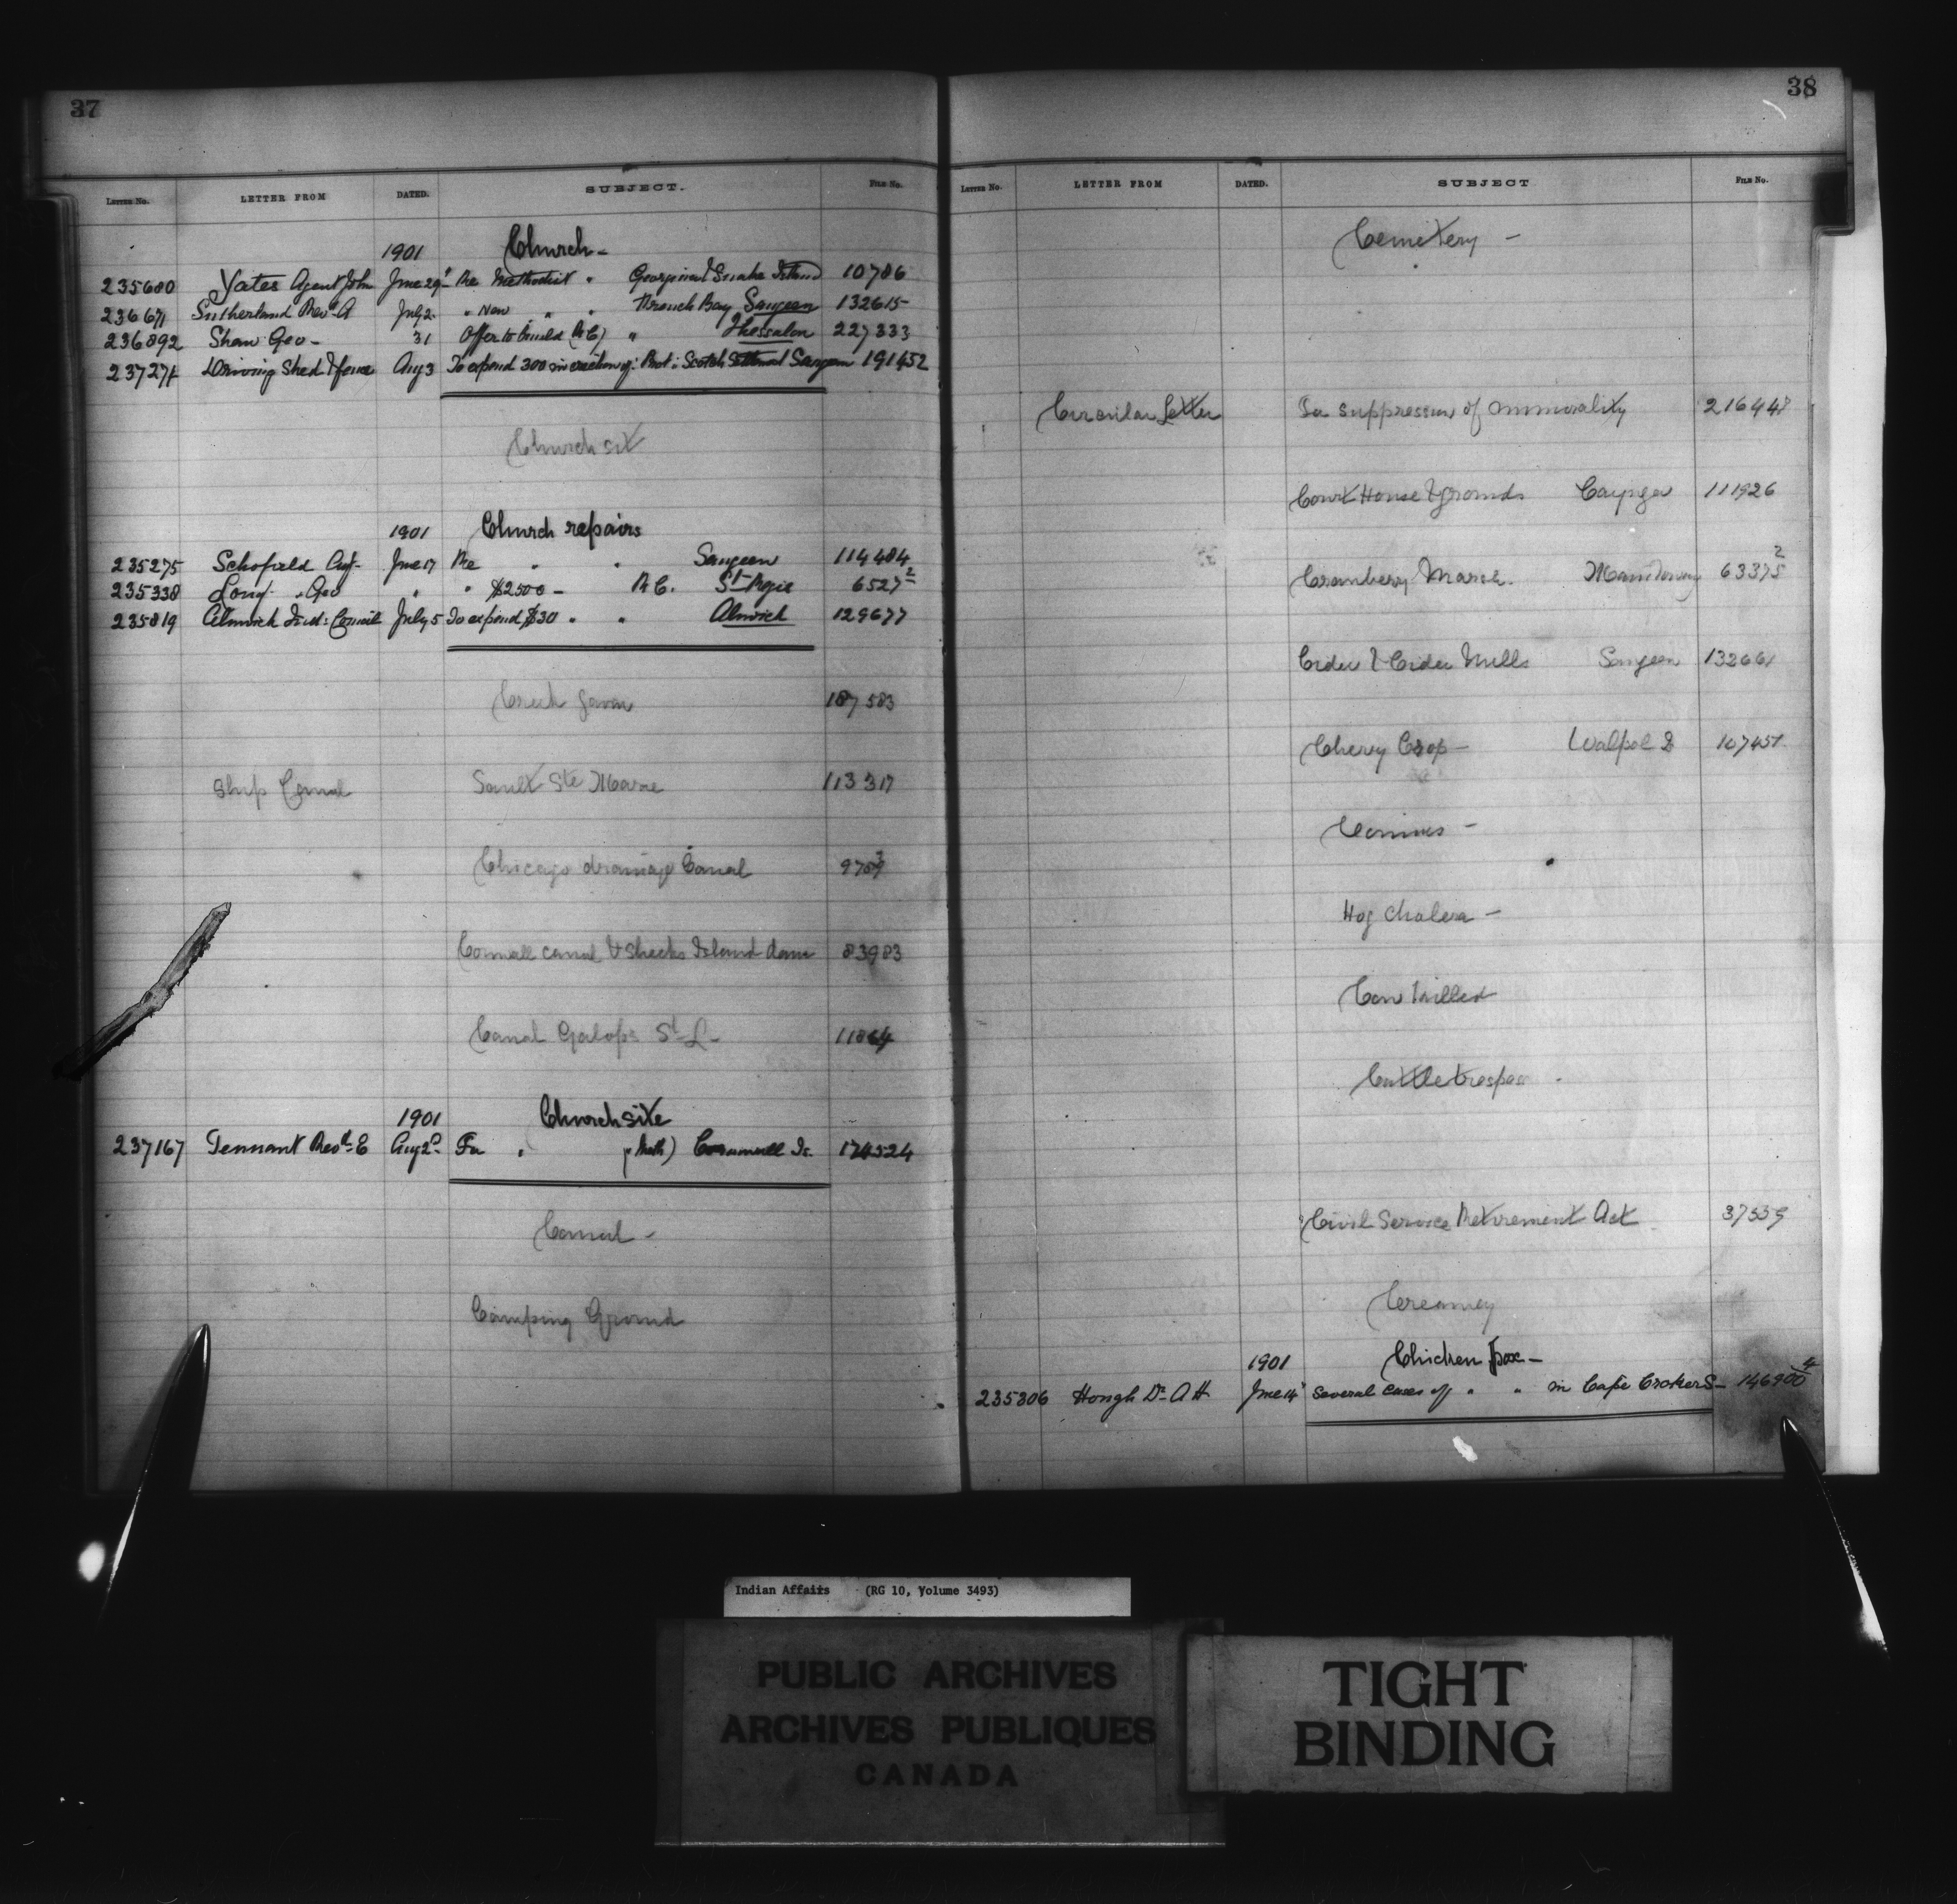 37
LETTER No. LETTER FROM DATED. SUBJECT. FILE No.
1901 Church -
235680 Yates Agent John June 29 Re Methodist " Georgina & Snake Island 10786
Sutherland Revd A July 2 " New " " French Bay Saugeen 132615
236892 Shaw Geo - 31 Offer to build (R C) " Thessalon 227333
Driving Shed & fence Aug 3 To expend 300 in erection of: Prot: Scotch Settlement Saugeen 191452
Church sit
1901 Church repairs
235275 Schofield Agt June 17 Re " " Saugeen 114484
235338 Long Geo " " $2500 - R C. St Regis 6527 2
235819 Alnwick Ind: Council July 5 To expend $30 " " Alnwick 129677
187583
Ship Canal Sault Ste Marie 113317
Chicago drainage Canal
Cornwall canal & Shecks Island dam 83983
Canal Galops St L - 11864
1901 Church site
237167 Tennant Revd E Aug 2 For " (Meth) Cornwall Is. 174524
Canal -
Camping Ground
38
LETTER No. LETTER FROM DATED. SUBJECT FILE No.
Cemetery -
Circular Letter For suppression of immorality 216447
Court House & grounds Cayuga 111926
Cranberry Marsh. 63375 2
Cider & Cider Mills Saugeen 132661
Cherry Crop - Walpole I 107451
Hog Cholera -
Cow killed
Cattle trespass
Civil Service Retirement Act 37339
Creamery
1901 Chicken pox -
235306 Hough Dr A H June 14 Several cases of " " in Cape Croker S - 146900 4
Indian Affairs (RG 10, Volume 3493)
PUBLIC ARCHIVES
ARCHIVES PUBLIQUES
CANADA
TIGHT
BINDING